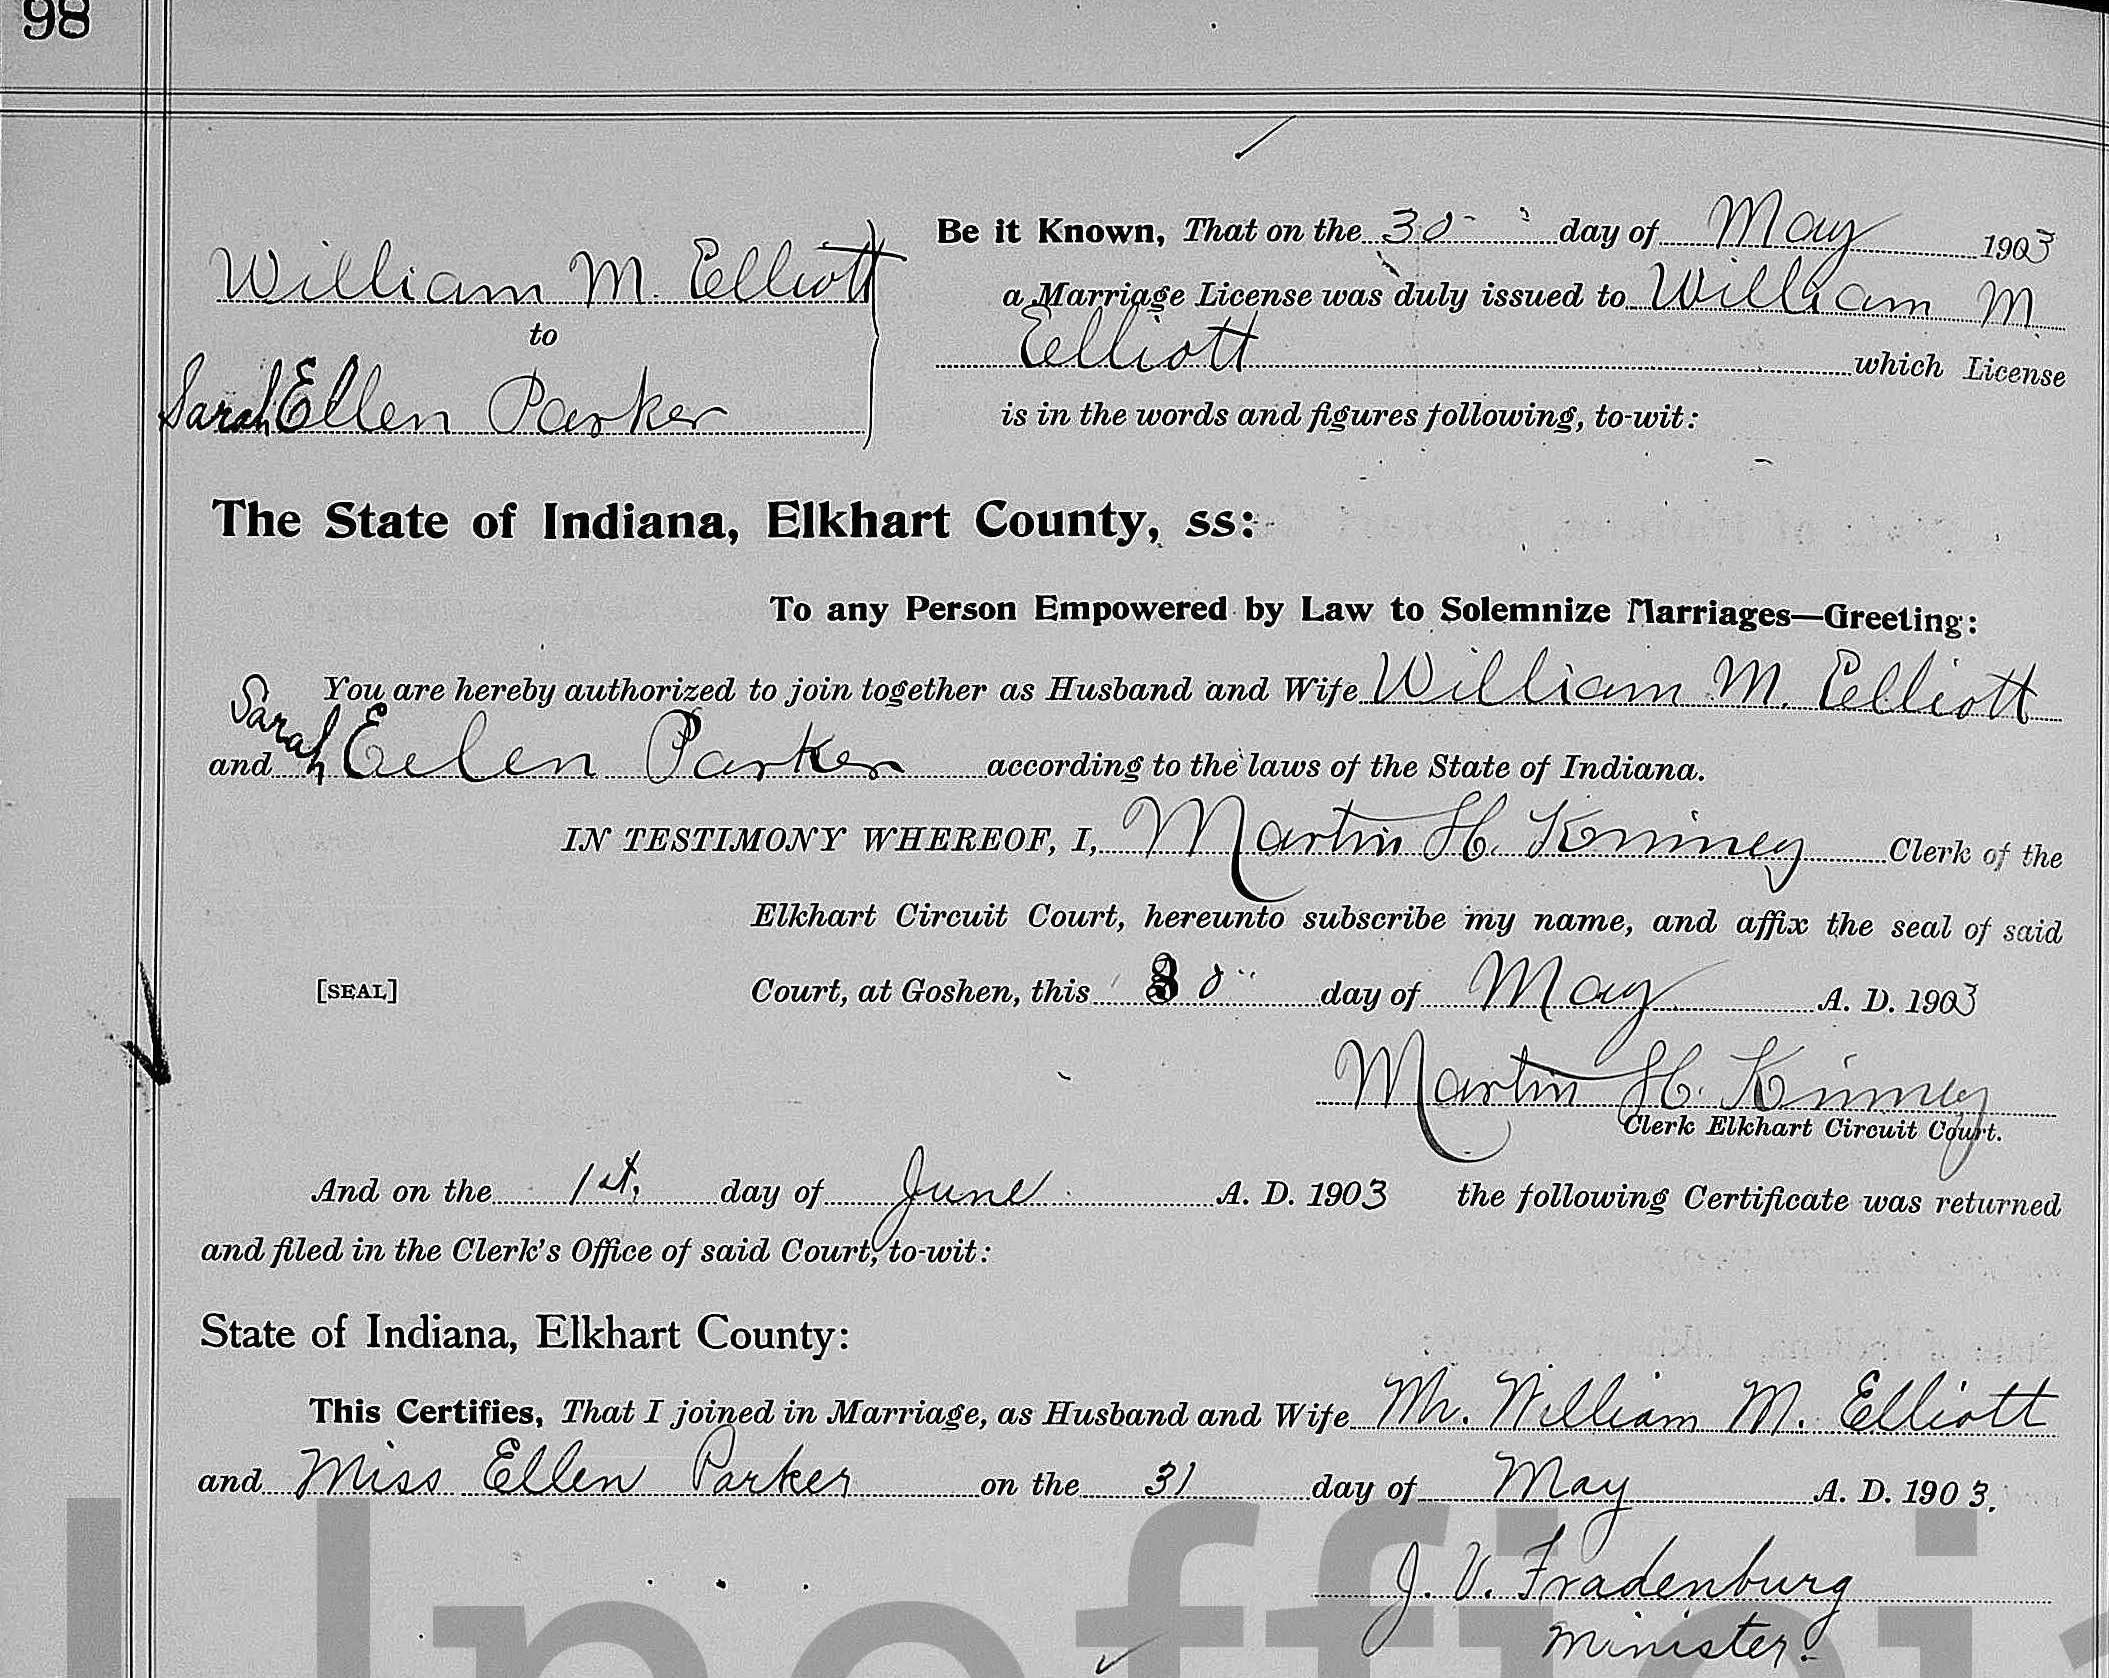 98
William M. Elliott
to
Sarah Ellen Parker
Be it Known, That on the 30 day of May 1903
a Marriage License was duly issued to William M
Elliott which License
is in the words and figures following, to-wit:
The State of Indiana, Elkhart County, ss:
To any Person Empowered by Law to Solemnize Marriages—Greeting:
You are hereby authorized to join together as Husband and Wife William M. Elliott
and Sarah Ellen Parker according to the laws of the State of Indiana.
IN TESTIMONY WHEREOF, I, Martin H. Kinney Clerk of the
Elkhart Circuit Court, hereunto subscribe my name, and affix the seal of said
[SEAL] Court, at Goshen, this 30 day of May A. D. 1903
Martin H. Kinney
Clerk Elkhart Circuit Court.
And on the 1st, day of June A. D. 1903 the following Certificate was returned
and filed in the Clerk's Office of said Court, to-wit:
State of Indiana, Elkhart County:
This Certifies, That I joined in Marriage, as Husband and Wife Mr. William M. Elliott
and Miss Ellen Parker on the 31 day of May A. D. 1903.
J. V. Fradenburg
Minister.